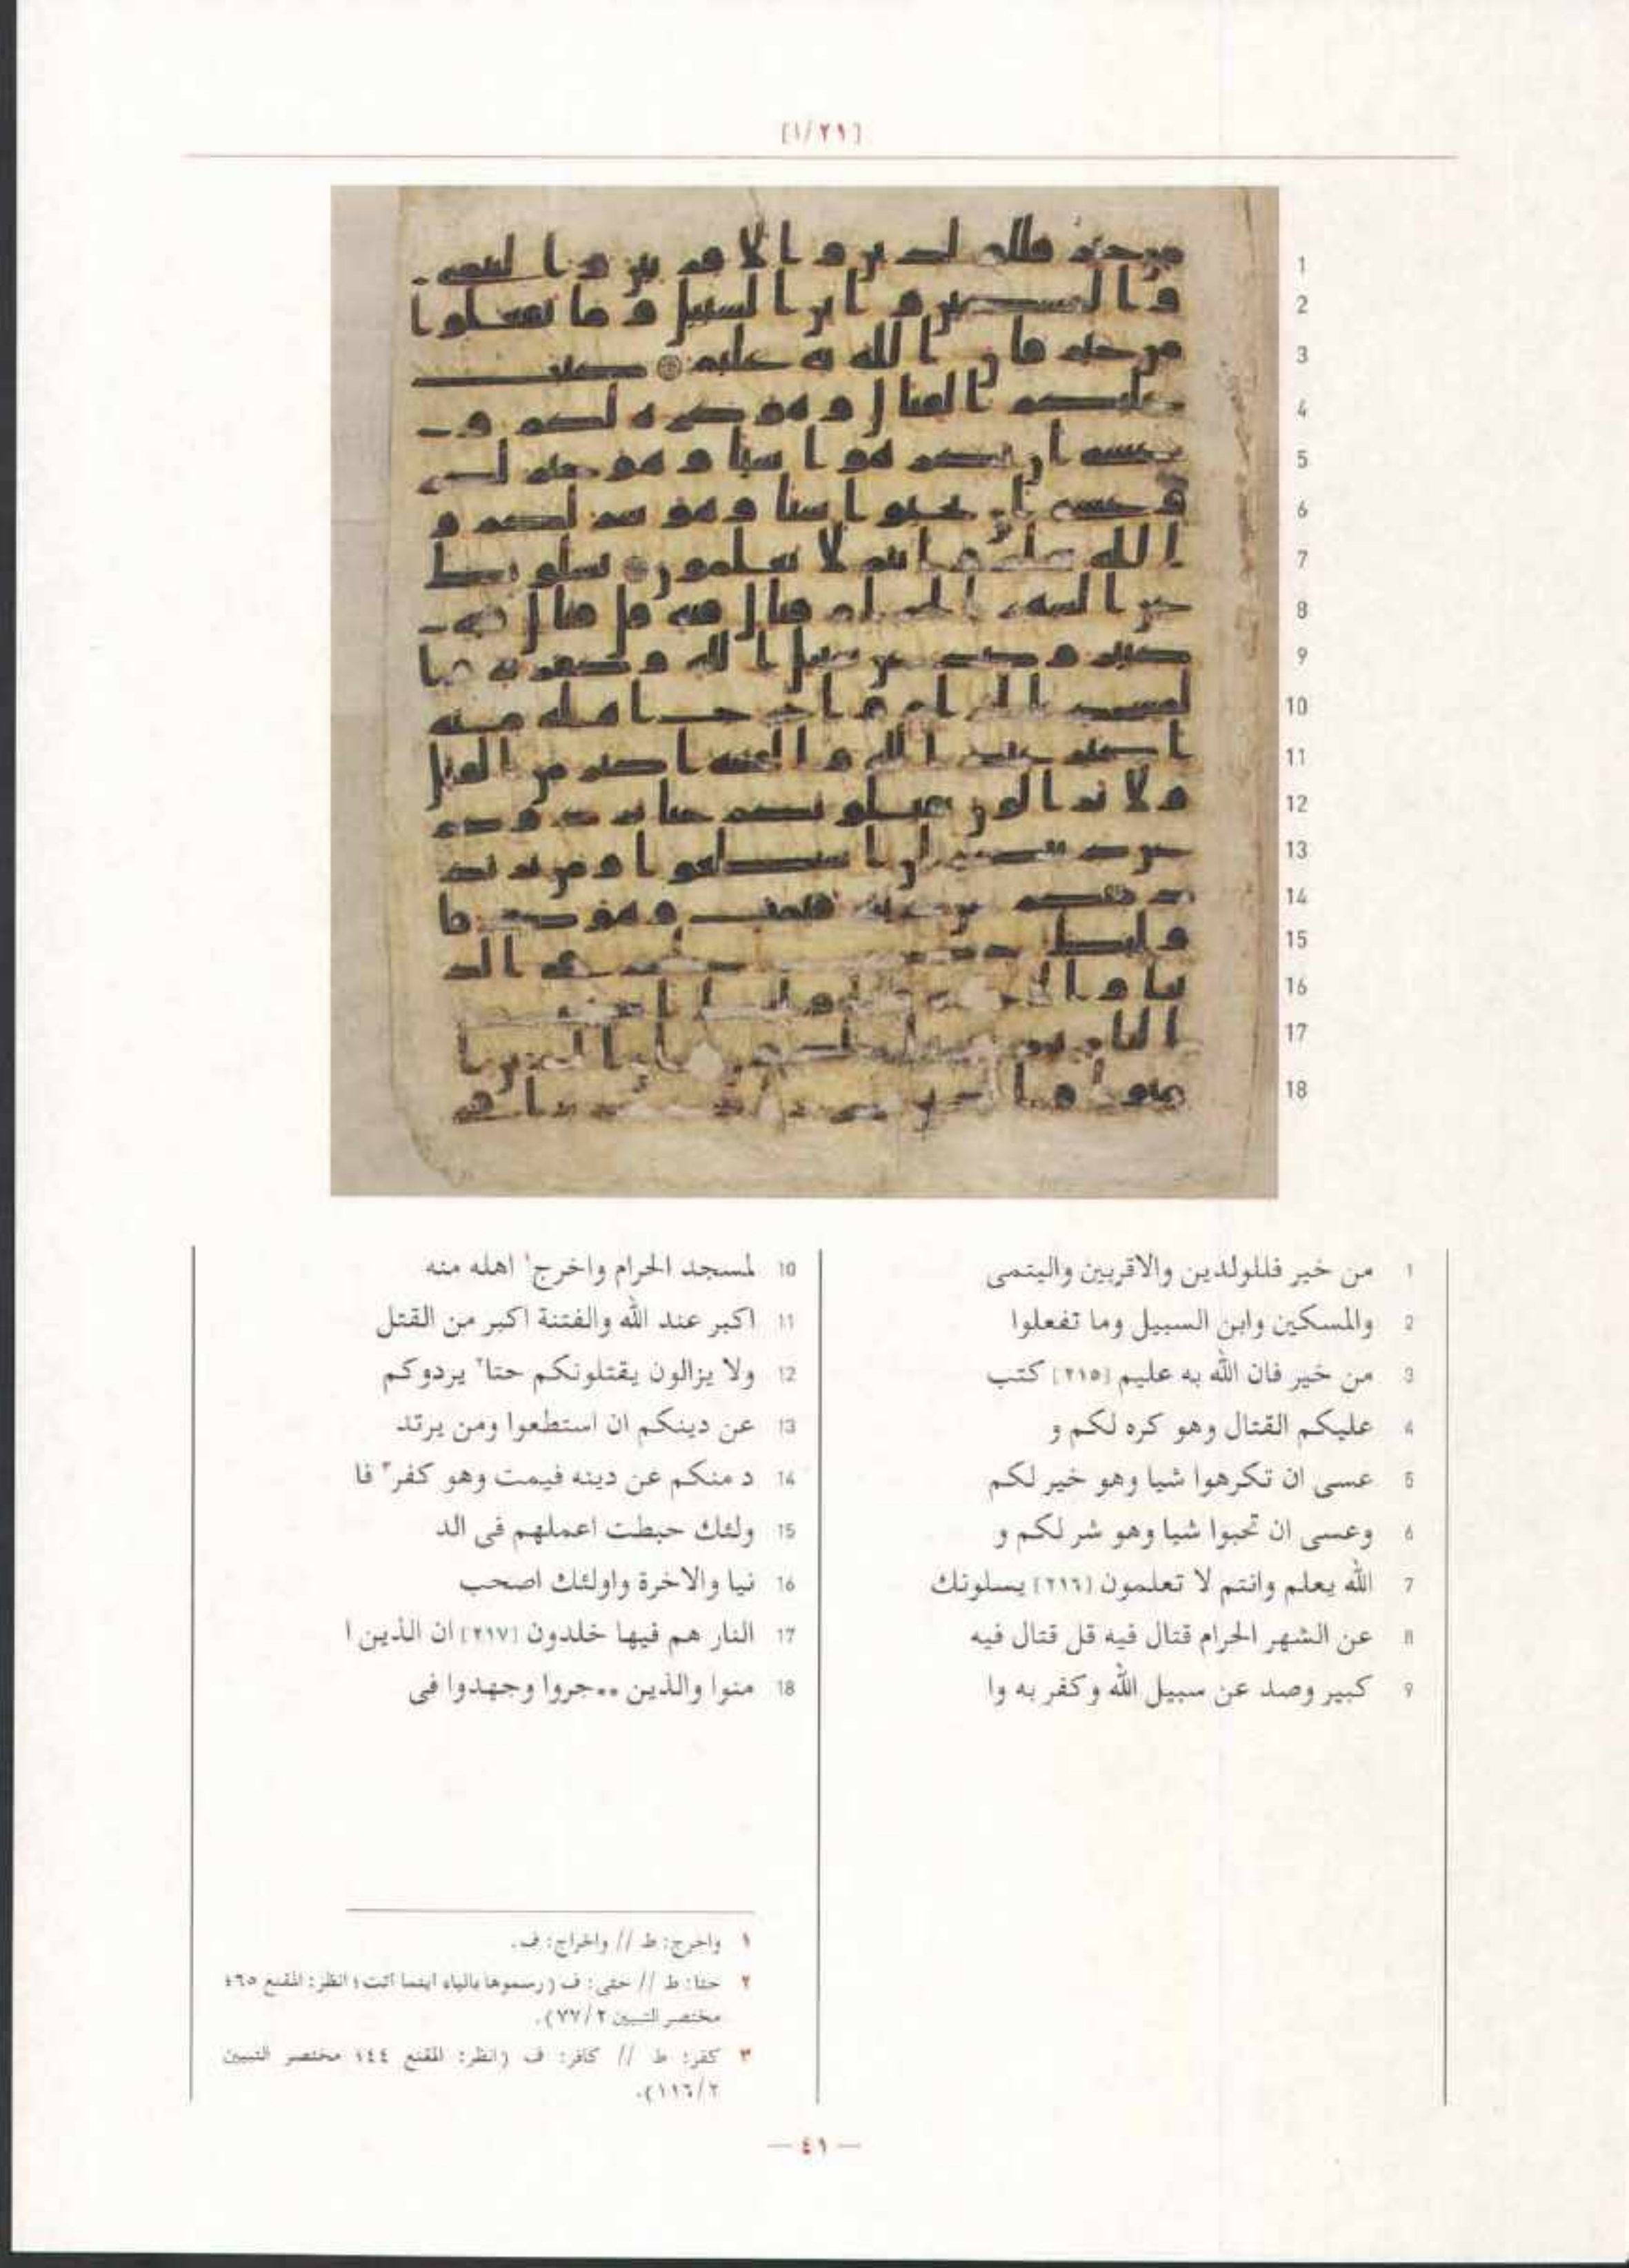 [١/٢١]
1 من خير فللولدين والاقربين واليتمى
2 والمسكين وابن السبيل وما تفعلوا
3 من خير فان الله به عليم [٢١٥] كتب
4 عليكم القتال وهو كره لكم و
5 عسى ان تكرهوا شيا وهو خير لكم
6 وعسى ان تحبوا شيا وهو شر لكم و
7 الله يعلم وانتم لا تعلمون [٢١٦] يسلونك
8 عن الشهر الحرام قتال فيه قل قتال فيه
9 كبير وصد عن سبيل الله وكفر به وا
10 لمسجد الحرام واخرج١ اهله منه
11 اكبر عند الله والفتنة اكبر من القتل
12 ولا يزالون يقتلونكم حتا٢ يردوكم
13 عن دينكم ان استطعوا ومن يرتد
14 د منكم عن دينه فيمت وهو كفر٣ فا
15 ولئك حبطت اعملهم فى الد
16 نيا والاخرة واولئك اصحب
17 النار هم فيها خلدون [٢١٧] ان الذين ا
18 منوا والذين **جروا وجهدوا فى
١ واخرج: ط // واخراج: ف.
٢ حتا: ط // حتى: ف (رسموها بالياء اينما اتت؛ انظر: المقنع ٤٦٥
مختصر التبيين ٧٧/٢).
٣ كفر: ط // كافر: ف (انظر: المقنع ٤٤؛ مختصر التبيين
١١٦/٢).
— ٤١ —